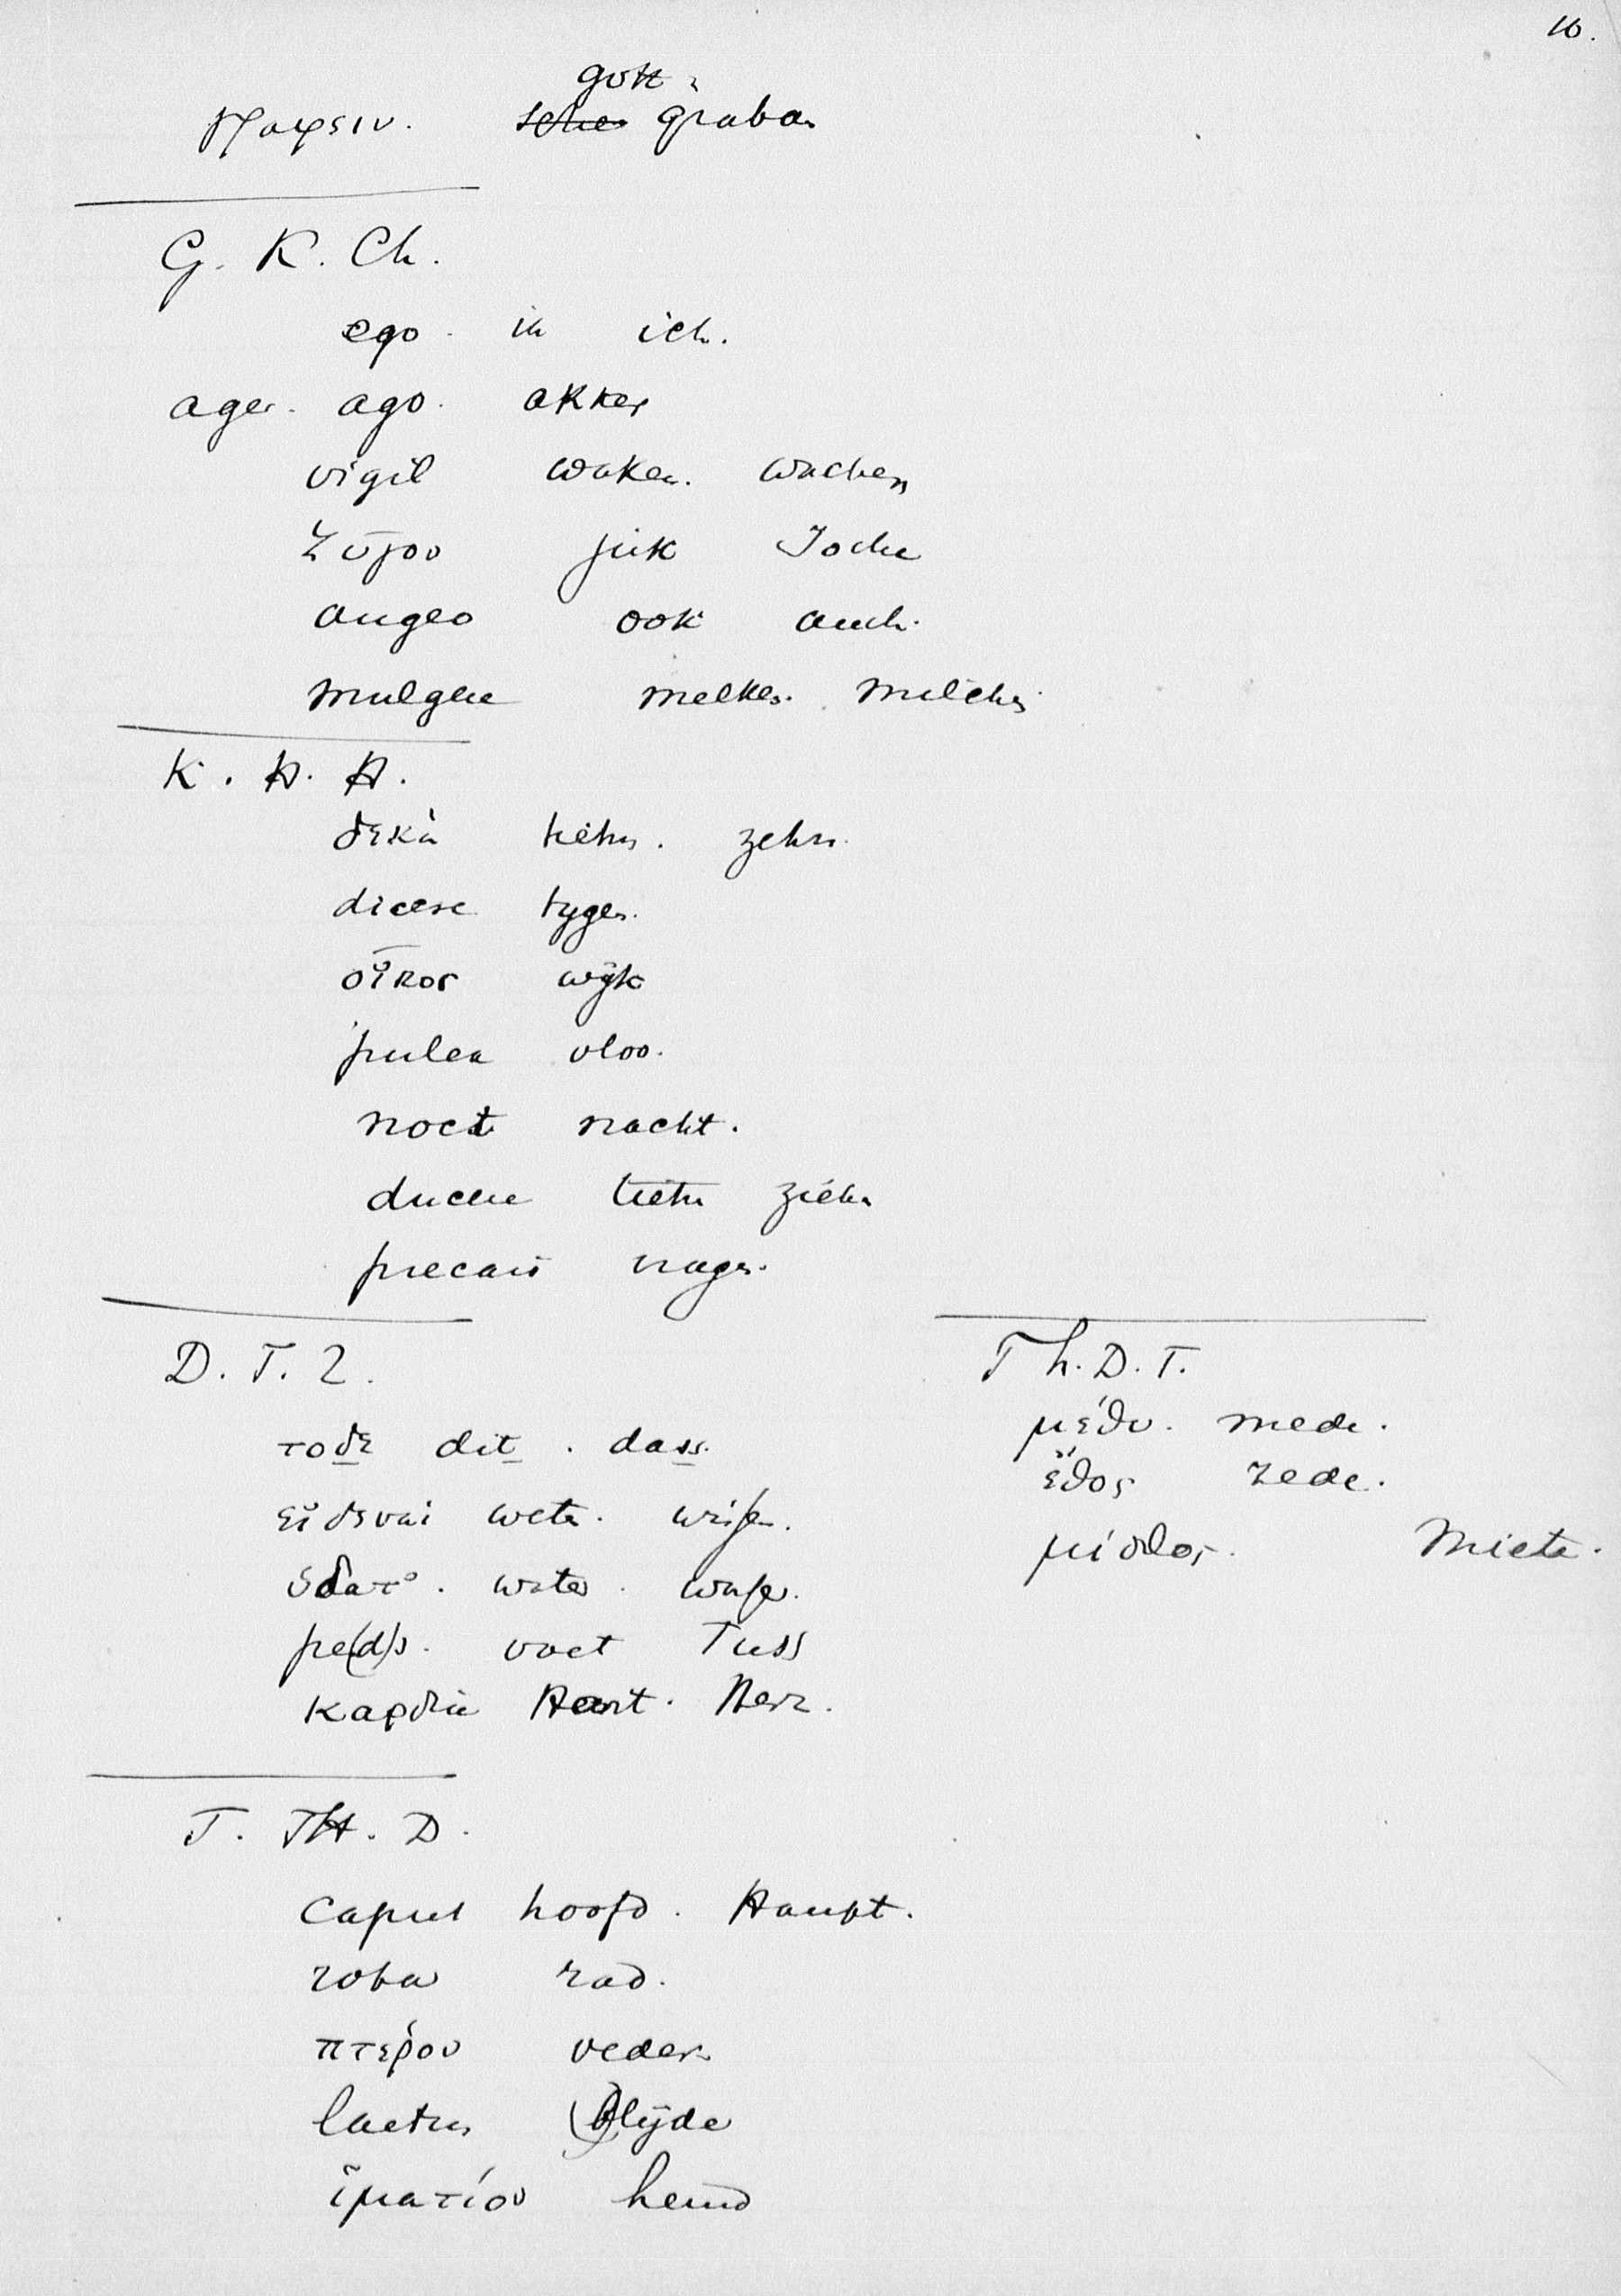 10.
gott.
γραφειν. graban
G. K. Ch.
ego. ik ich.
ager. ago. akker
vigil waken. wachen
ζυγον juk Joche
augeo ook auch.
mulgere melken. milchen
K. H. H.
δεκα tiehn. zehn.
dicere tygen.
οἶκος wijk
pulex vloo.
noct nacht.
ducere tiehn ziehn
precari vragen.
D. T. Z.
τοδε dit. dass.
εἰδεναι weten. wissen.
ὑδατο. water. wasser.
pe(d)s. voet Fuss
καρδια Hart. Herz.
Th. D. T.
μέθυ. mede.
ἔθος zede.
μίσθος. Miete.
T. TH. D.
caput hoofd. Haupt.
rota rad.
πτερον veder.
laetus (b)lijde
ἱματίον hemd